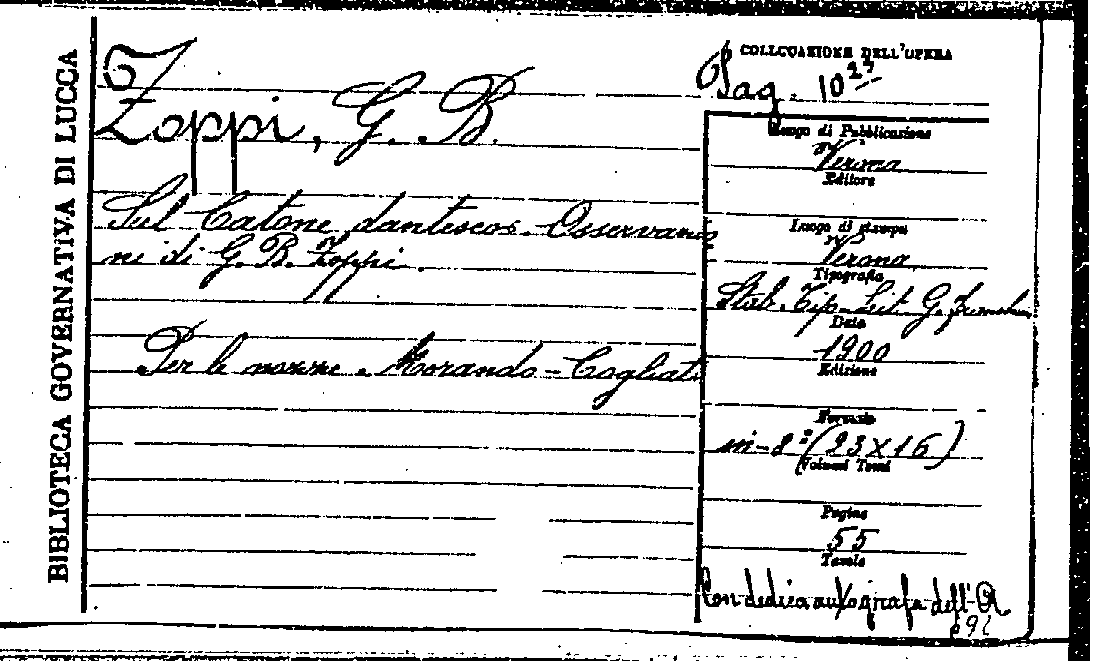 BIBLIOTECA GOVERNATIVA DI LUCCA
Zoppi, G. B.
Sul Catone dantesco. Osservazio
ni di G. B. Zoppi.
Per le nozze Morando-Cogliati
COLLOCAZIONE DELL'OPERA
Pag. 10
Luogo di Pubblicazione
Verona
Editore
Luogo di stampa
Verona
Tipografia
Stab. Tip. Lit. G.
Data
1900
Edizione
Formato
in-8° (23x16)
Volumi Tomi
Pagine
55
Tavole
Con dedica autografa dell'A